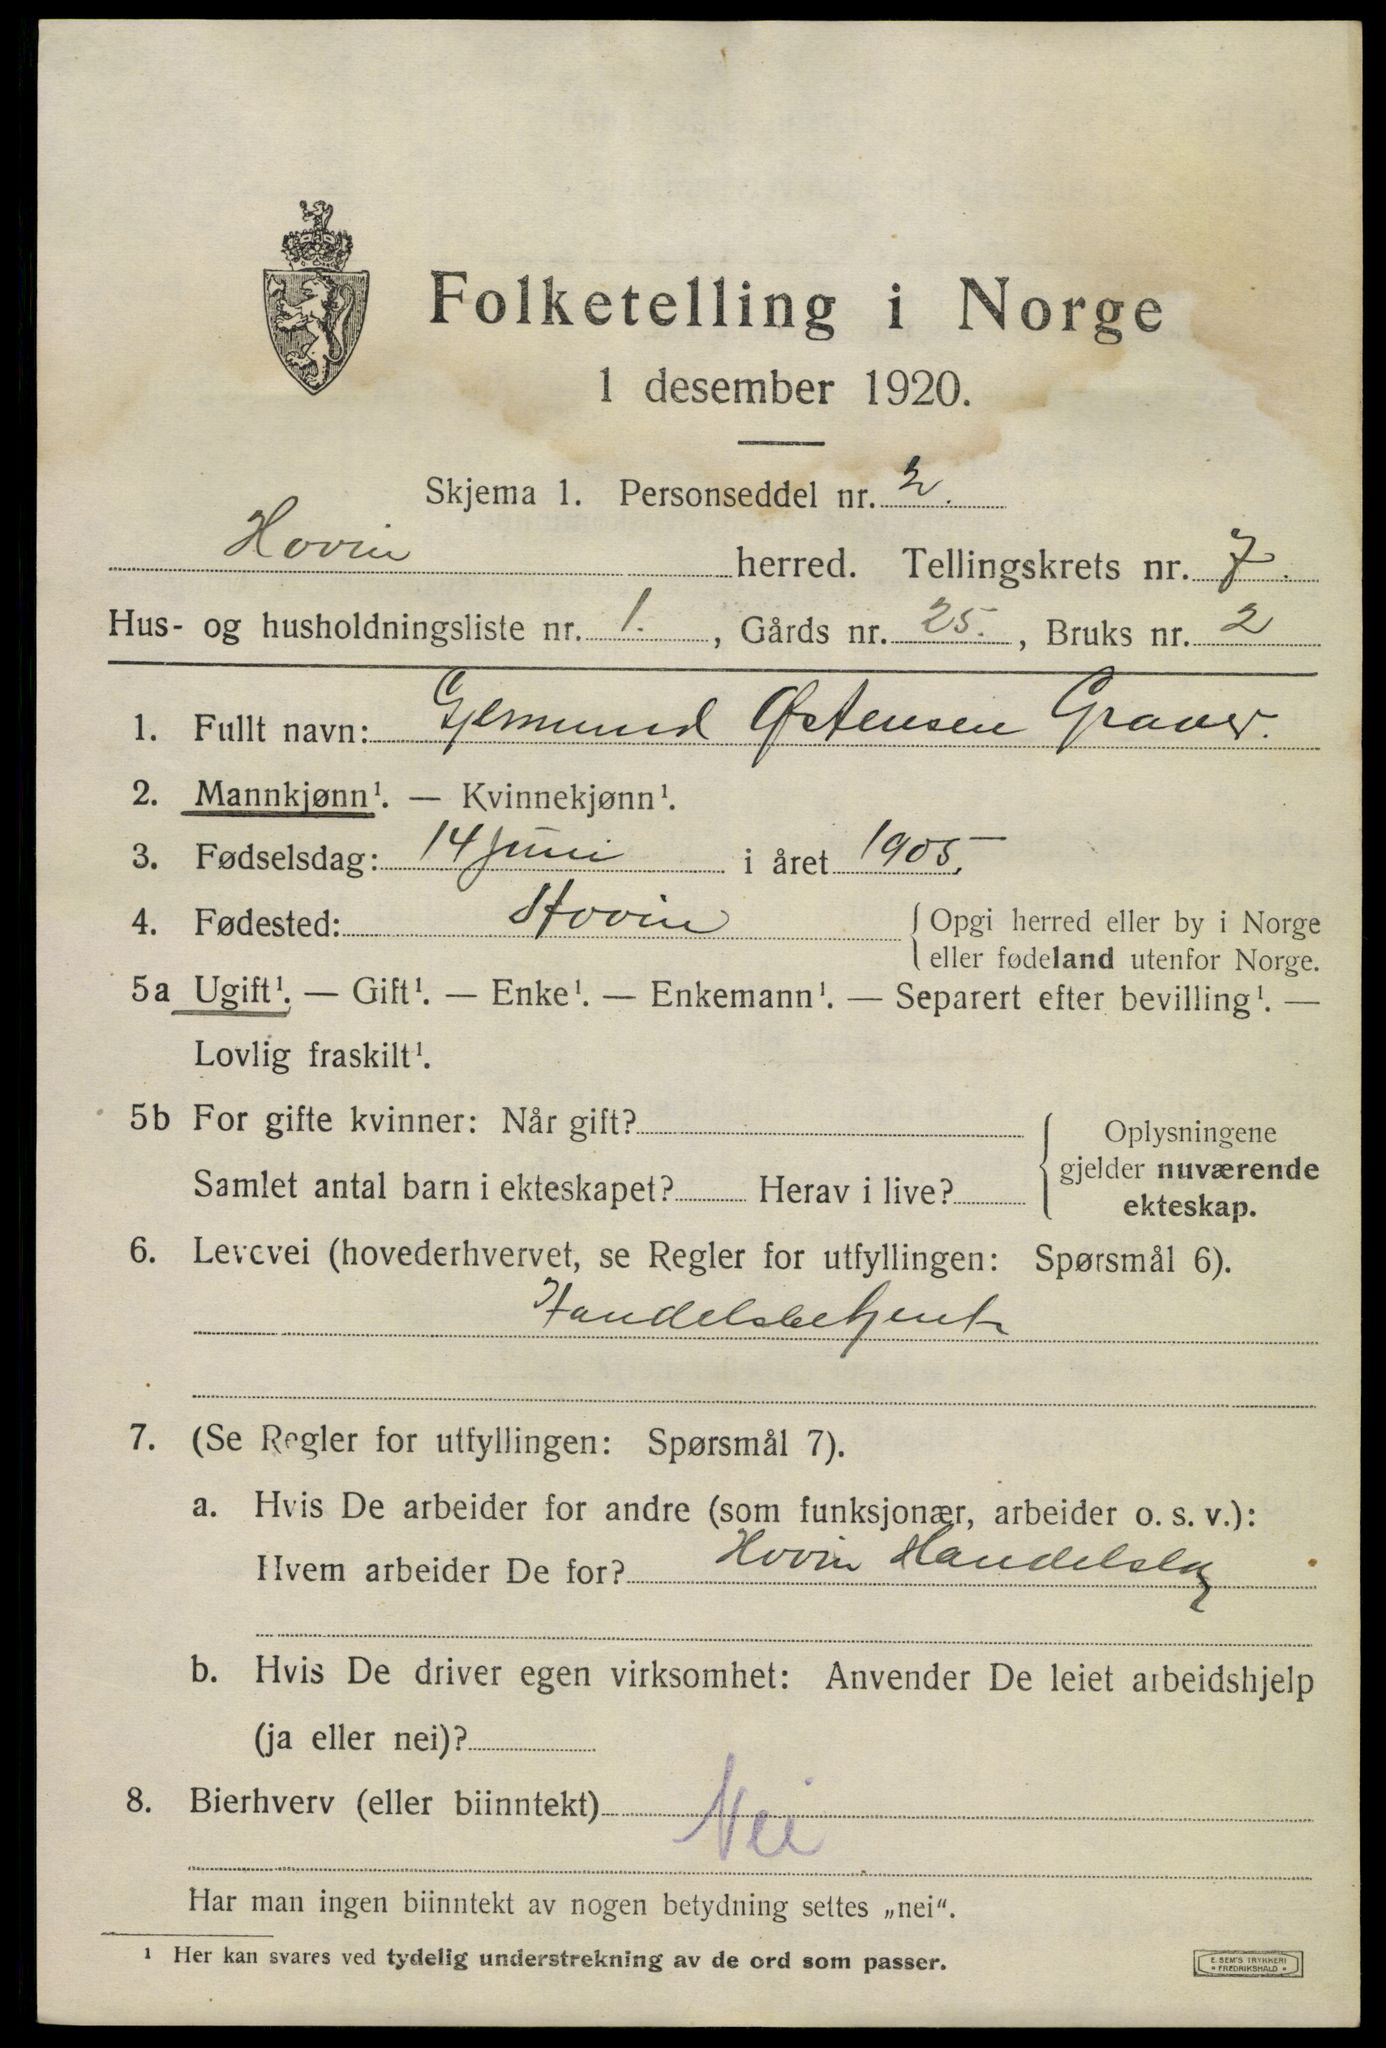 Folketelling i Norge
1 desember 1920.
Skjema 1. Personseddel nr. 2.
Hovin herred. Tellingskrets nr. 7.
Hus- og husholdningsliste nr. 1., Gårds nr. 25., Bruks nr. 2
1. Fullt navn: Gjermund Østensen Graver.
2. Mannkjønn¹. — Kvinnekjønn¹.
3. Fødselsdag: 14 juni i året 1905.
4. Fødested: Hovin { Opgi herred eller by i Norge
eller fødeland utenfor Norge.
5a Ugift¹. — Gift¹. — Enke¹. — Enkemann¹. — Separert efter bevilling¹. —
Lovlig fraskilt¹.
5b For gifte kvinner: Når gift?
Samlet antal barn i ekteskapet? Herav i live?
{ Oplysningene
gjelder nuværende
ekteskap.
6. Levevei (hovederhvervet, se Regler for utfyllingen: Spørsmål 6).
Handelsbetjent
7. (Se Regler for utfyllingen: Spørsmål 7).
a. Hvis De arbeider for andre (som funksjonær, arbeider o. s. v.):
Hvem arbeider De for? Hovin Handelslag
b. Hvis De driver egen virksomhet: Anvender De leiet arbeidshjelp
(ja eller nei)?
8. Bierhverv (eller biinntekt) Nei
Har man ingen biinntekt av nogen betydning settes „nei“.
¹ Her kan svares ved tydelig understrekning av de ord som passer.
E. SEM'S TRYKKERI
* FREDRIKSHALD *